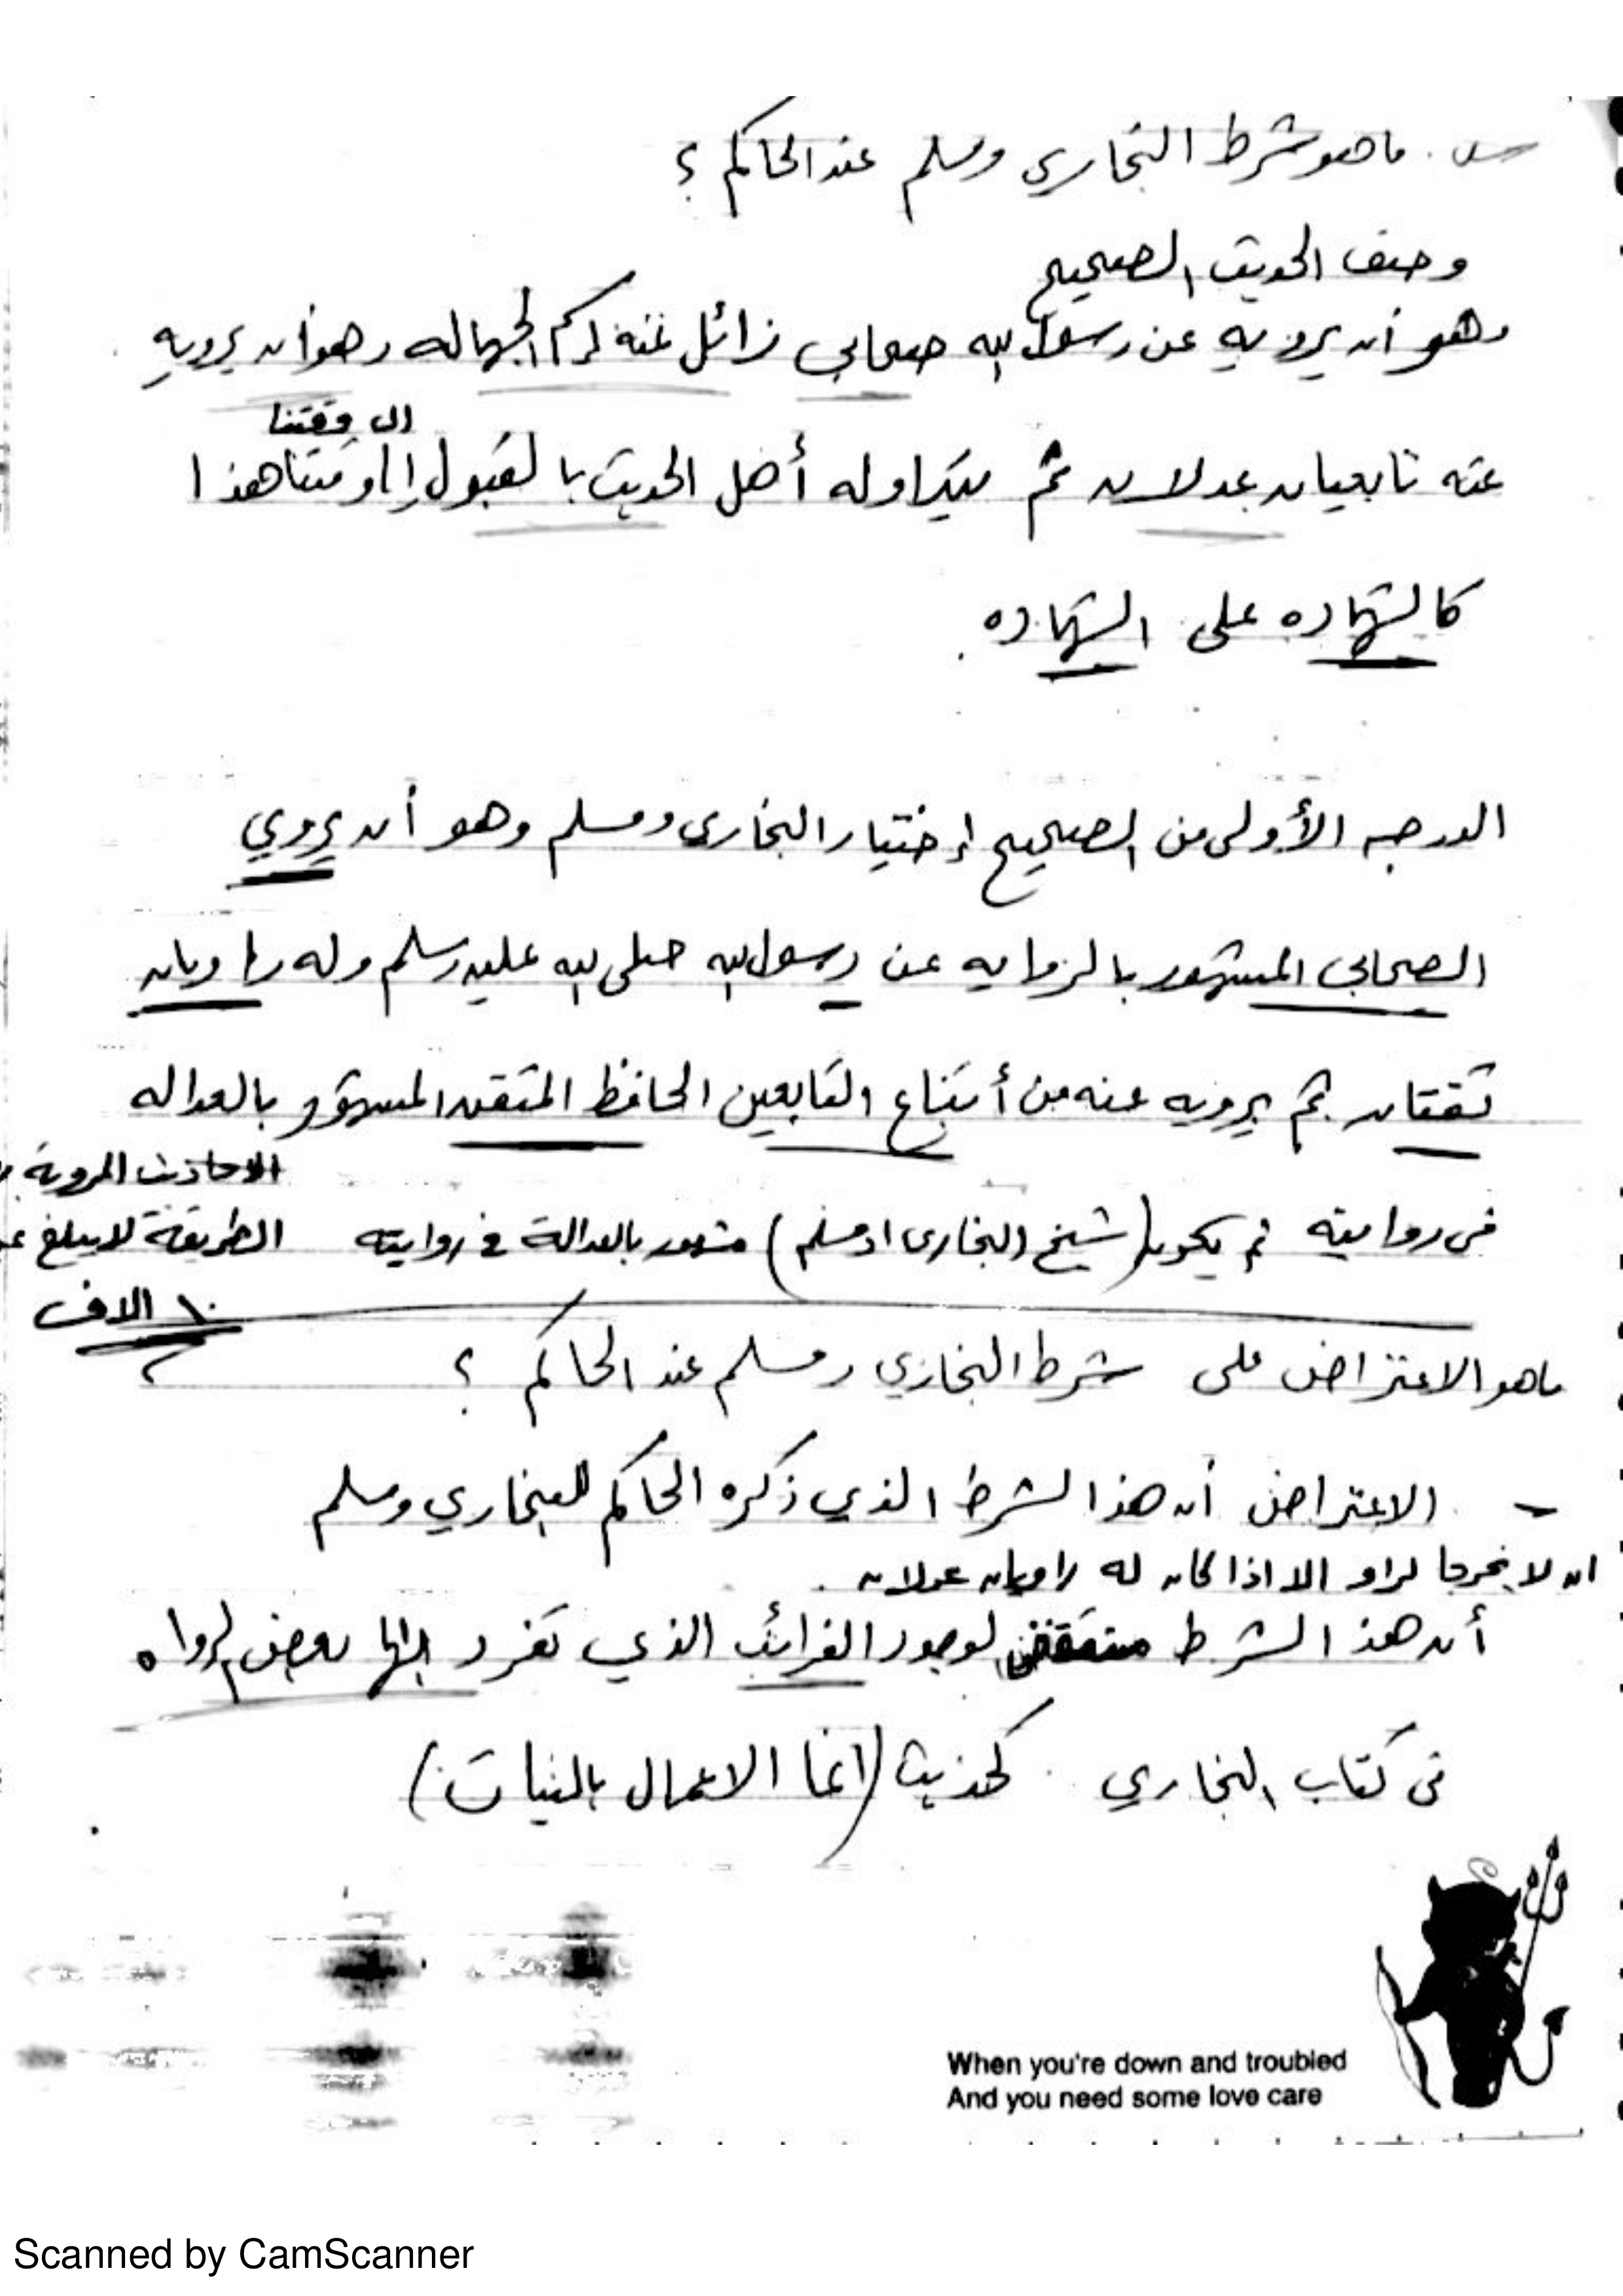 س. ما هو شرط البخاري ومسلم عند الحاكم ؟
وصف الحديث الصحيح
وهو أن يرويه عن رسول الله صحابي زائل عنه اسم الجهاله وهو أن يرويه
الى وقتنا
عنه تابعيان عدلان ثم يتداوله أهل الحديث بالقبول إلى وقتنا هذا
كالشهاده على الشهاده.
الدرجه الأولى من الصحيح إختيار البخاري ومسلم وهو أن يروي
الصحابي المشهور بالروايه عن رسول الله صلى الله عليه وسلم وله راويان
ثقتان ثم يرويه عنه من أتباع التابعين الحافظ المتقن المشهور بالعداله
الاحاديث المروية
في روايته ثم يكون (شيخ البخارى او مسلم) مشهور بالعدالة في روايته الطريقة لا يبلغ
١٠ الاف
ما هو الاعتراض على شرط البخاري ومسلم عند الحاكم ؟
- الاعتراض أن هذا الشرط الذي ذكره الحاكم للبخاري ومسلم
ان لا يخرجا لراو الا اذا كان له راويان عدلان.
أن هذ الشرط منتقض لوجود الغرائب الذي تفرد بها بعض الرواه
في كتاب البخاري كحديث (انما الاعمال بالنيات)
When you're down and troubled
And you need some love care
Scanned by CamScanner